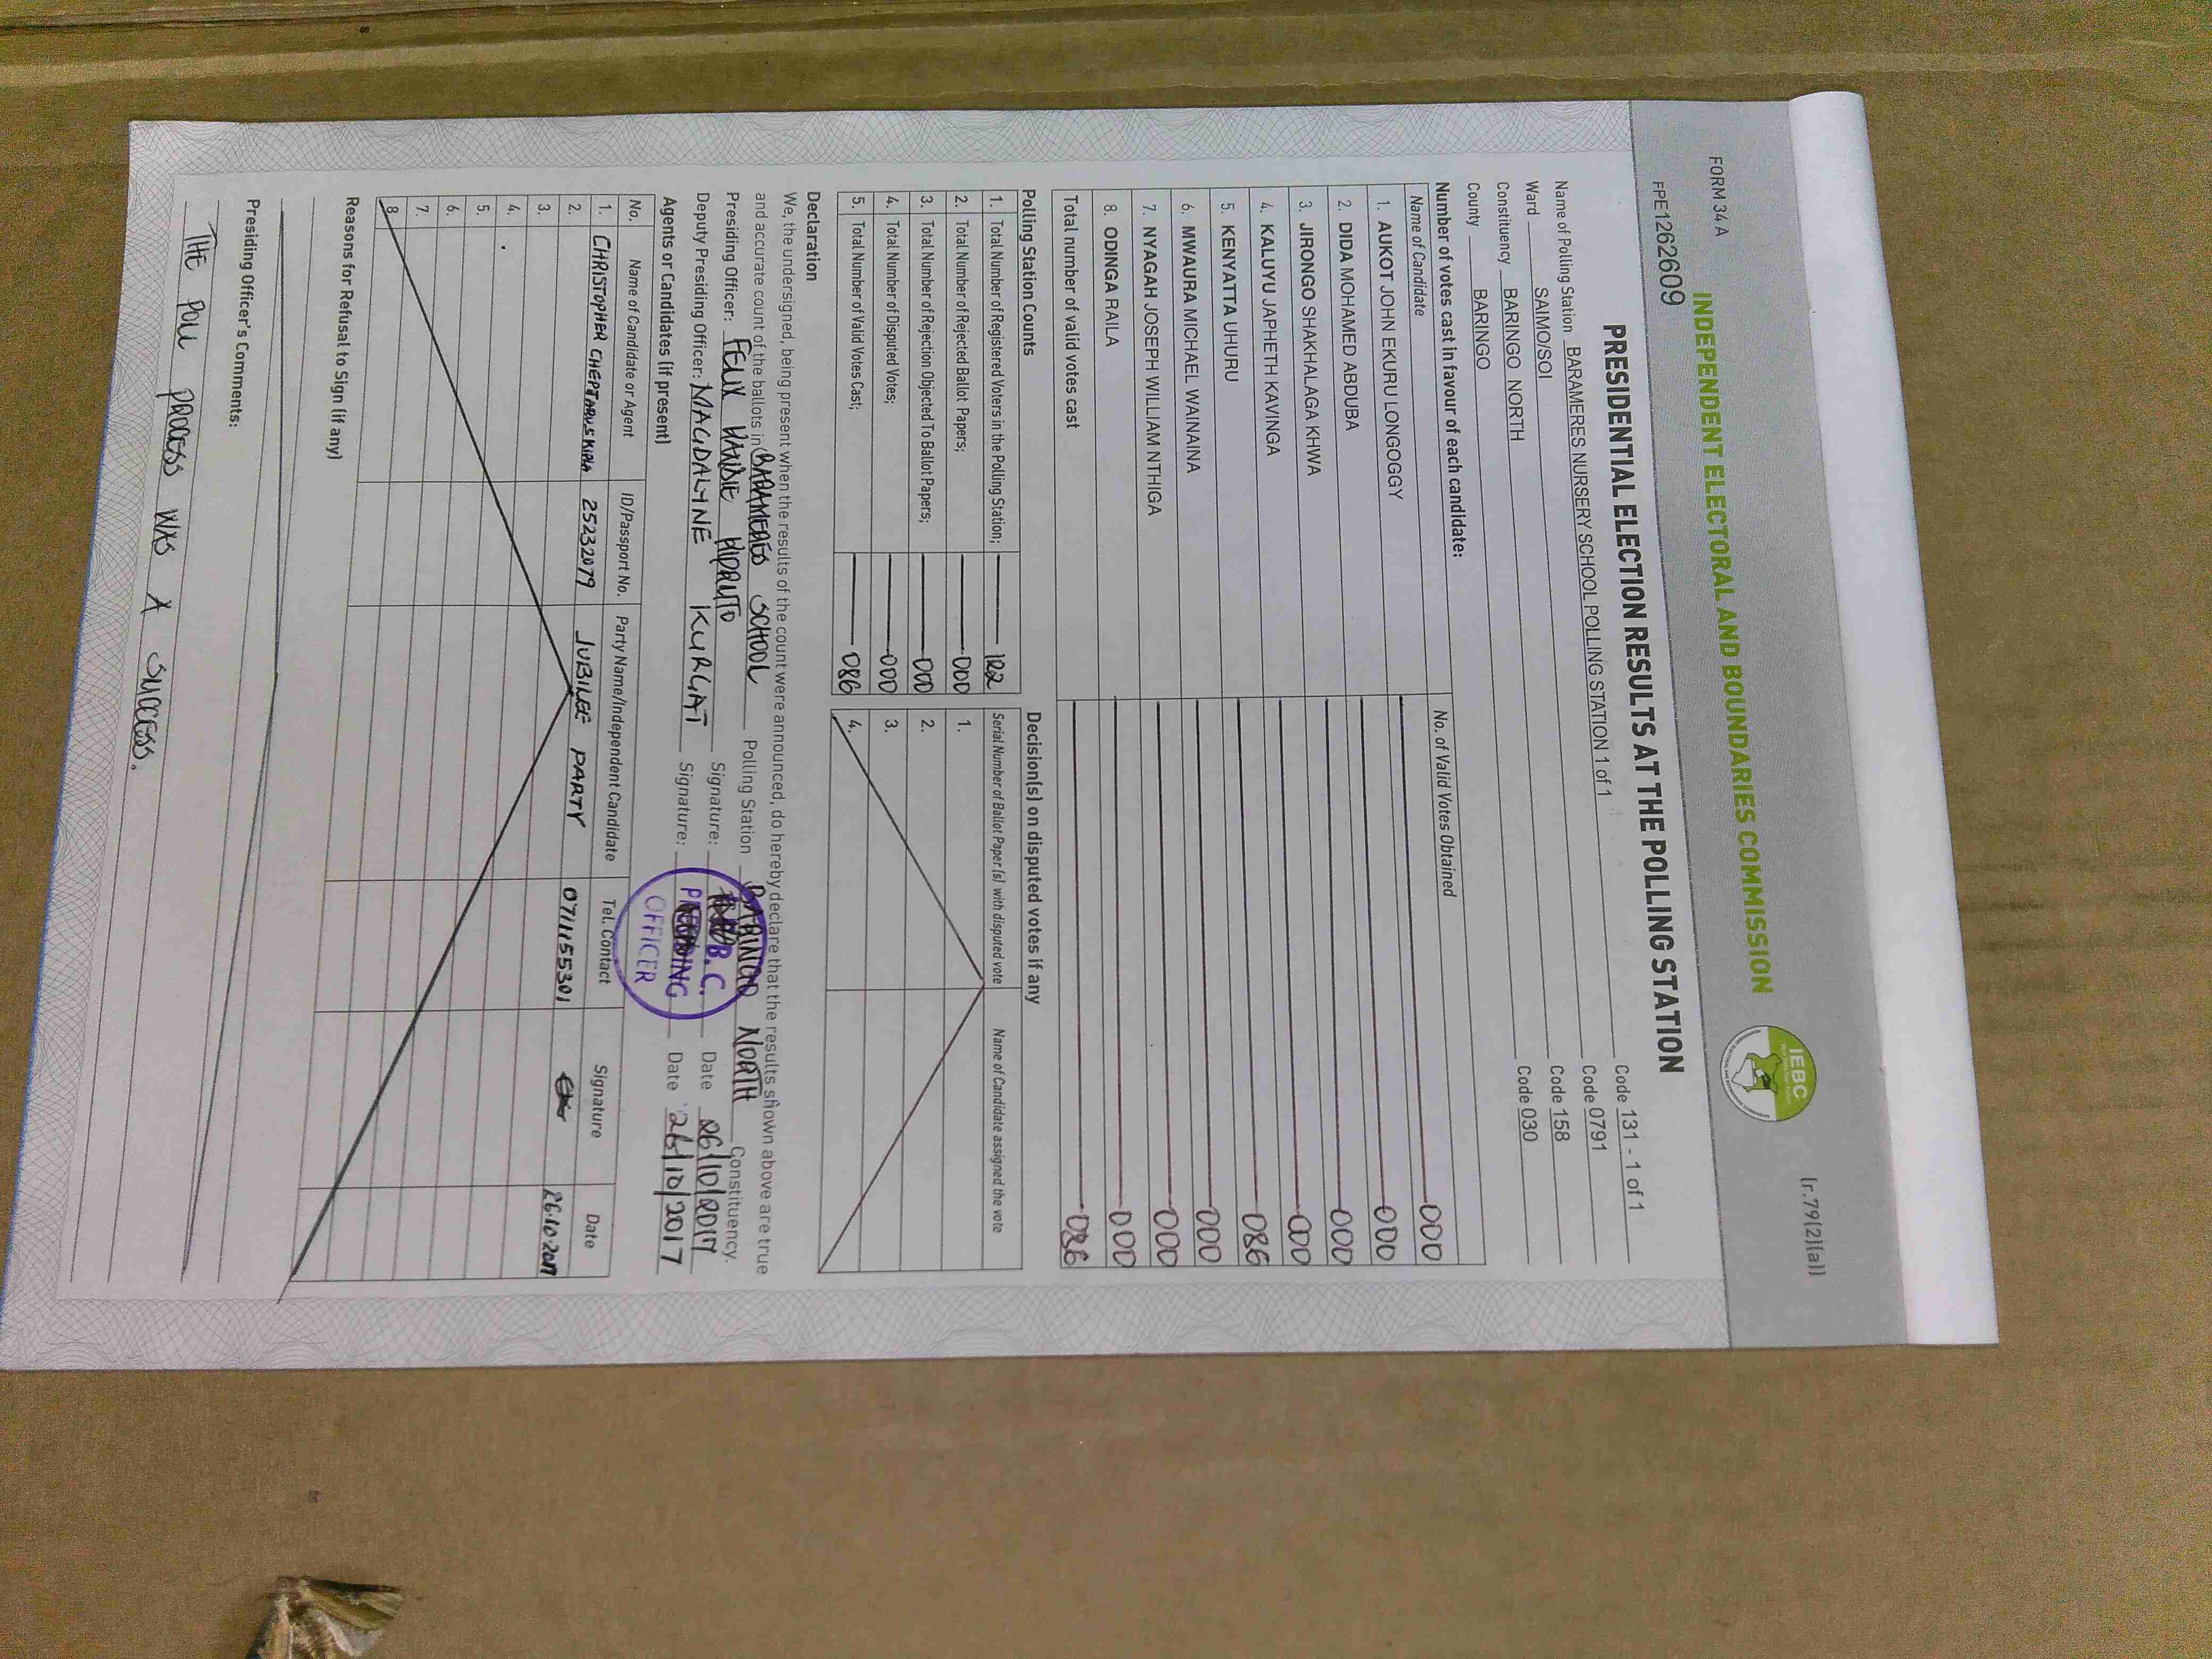 FORM 34 A
(r.79(2)(a))
INDEPENDENT ELECTORAL AND BOUNDARIES COMMISSION
IEBC
FPE1262609
PRESIDENTIAL ELECTION RESULTS AT THE POLLING STATION
Name of Polling Station BARAMERES NURSERY SCHOOL POLLING STATION 1 of 1 Code 131 - 1 of 1
Ward SAIMO/SOI Code 0791
Constituency BARINGO NORTH Code 158
County BARINGO Code 030
Number of votes cast in favour of each candidate:
Name of Candidate No. of Valid Votes Obtained
1. AUKOT JOHN EKURU LONGOGGY 000
2. DIDA MOHAMED ABDUBA 000
3. JIRONGO SHAKHALAGA KHWA 000
4. KALUYU JAPHETH KAVINGA 000
5. KENYATTA UHURU 086
6. MWAURA MICHAEL WAINAINA 000
7. NYAGAH JOSEPH WILLIAM NTHIGA 000
8. ODINGA RAILA 000
Total number of valid votes cast 086
Polling Station Counts
1. Total Number of Registered Voters in the Polling Station; 122
2. Total Number of Rejected Ballot Papers; 000
3 Total Number of Rejection Objected To Ballot Papers; 000
4. Total Number of Disputed Votes; 000
5. Total Number of Valid Votes Cast; 086
Decision(s) on disputed votes if any
Serial Number of Ballot Paper (s) with disputed vote Name of Candidate assigned the vote
1.
2.
3.
4.
Declaration
We, the undersigned, being present when the results of the count were announced, do hereby declare that the results shown above are true
and accurate count of the ballots in BARAMERES SCHOOL Polling Station BARINGO NORTH Constituency.
Presiding Officer: FELIX Signature: Date 26/10/2017
Deputy Presiding Officer: MAGDALYNE KURGAT Signature: Date 26/10/2017
B.C.
PRESIDING
OFFICER
Agents or Candidates (if present)
No. Name of Candidate or Agent ID/Passport No. Party Name/Independent Candidate Tel. Contact Signature Date
1. CHRISTOPHER 25232079 JUBILEE PARTY 0711155301 26.10.2017
2.
3.
4.
5
6.
7.
8.
Reasons for Refusal to Sign (if any)
Presiding Officer's Comments:
THE POLL PROCESS WAS A SUCCESS.